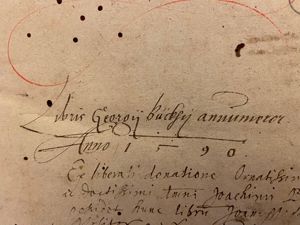 Libris Georgij Büchsij annumeror
Anno 1590
Ex liberali donatione Ornatissimi
et doctissimi Joachimi
possidet hunc librū Joan